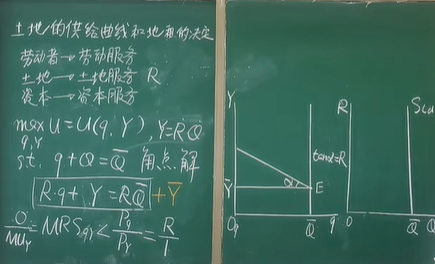 土地的供给曲线和地租的决定
劳动者→劳动服务
土地→土地服务 R
资本→资本服务
max U=U(q,Y), Y=RQ
q,Y
s.t. q+Q=Q̅ 角点解
R·q+Y=RQ̅+Y̅
0/MUY=MRSqY<Pq/PY=R/1
Y
Y̅
α
E
tanα=R
0
Q̅
q
R
0
Q̅
Q